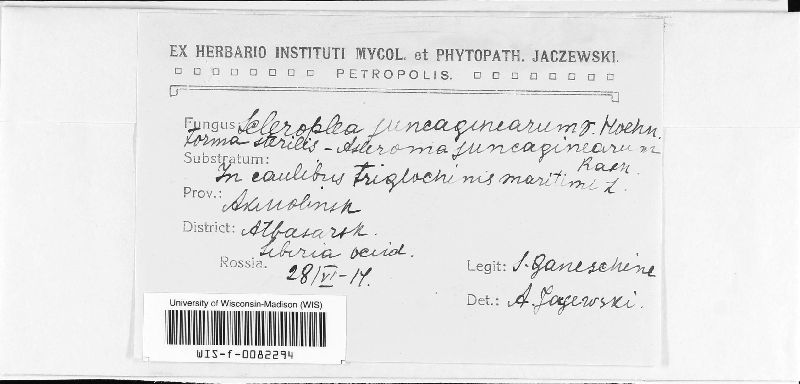 EX HERBARIO INSTITUTI MYCOL. et PHYTOPATH. JACZEWSKI.
PETROPOLIS.
Fungus: Scleroplea juncaginearum v. Hoehn.
forma sterilis - Asteroma juncaginearum
Rabh.
Substratum:
In caulibus Triglochinis maritimi L.
Prov.: Akmolinsk
District: Atbasarsk.
Siberia occid.
Rossia.
28/VI-14.
Legit: S. Ganeschine
Det.: A. Jaczewski.
University of Wisconsin-Madison (WIS)
WIS-f-0082294